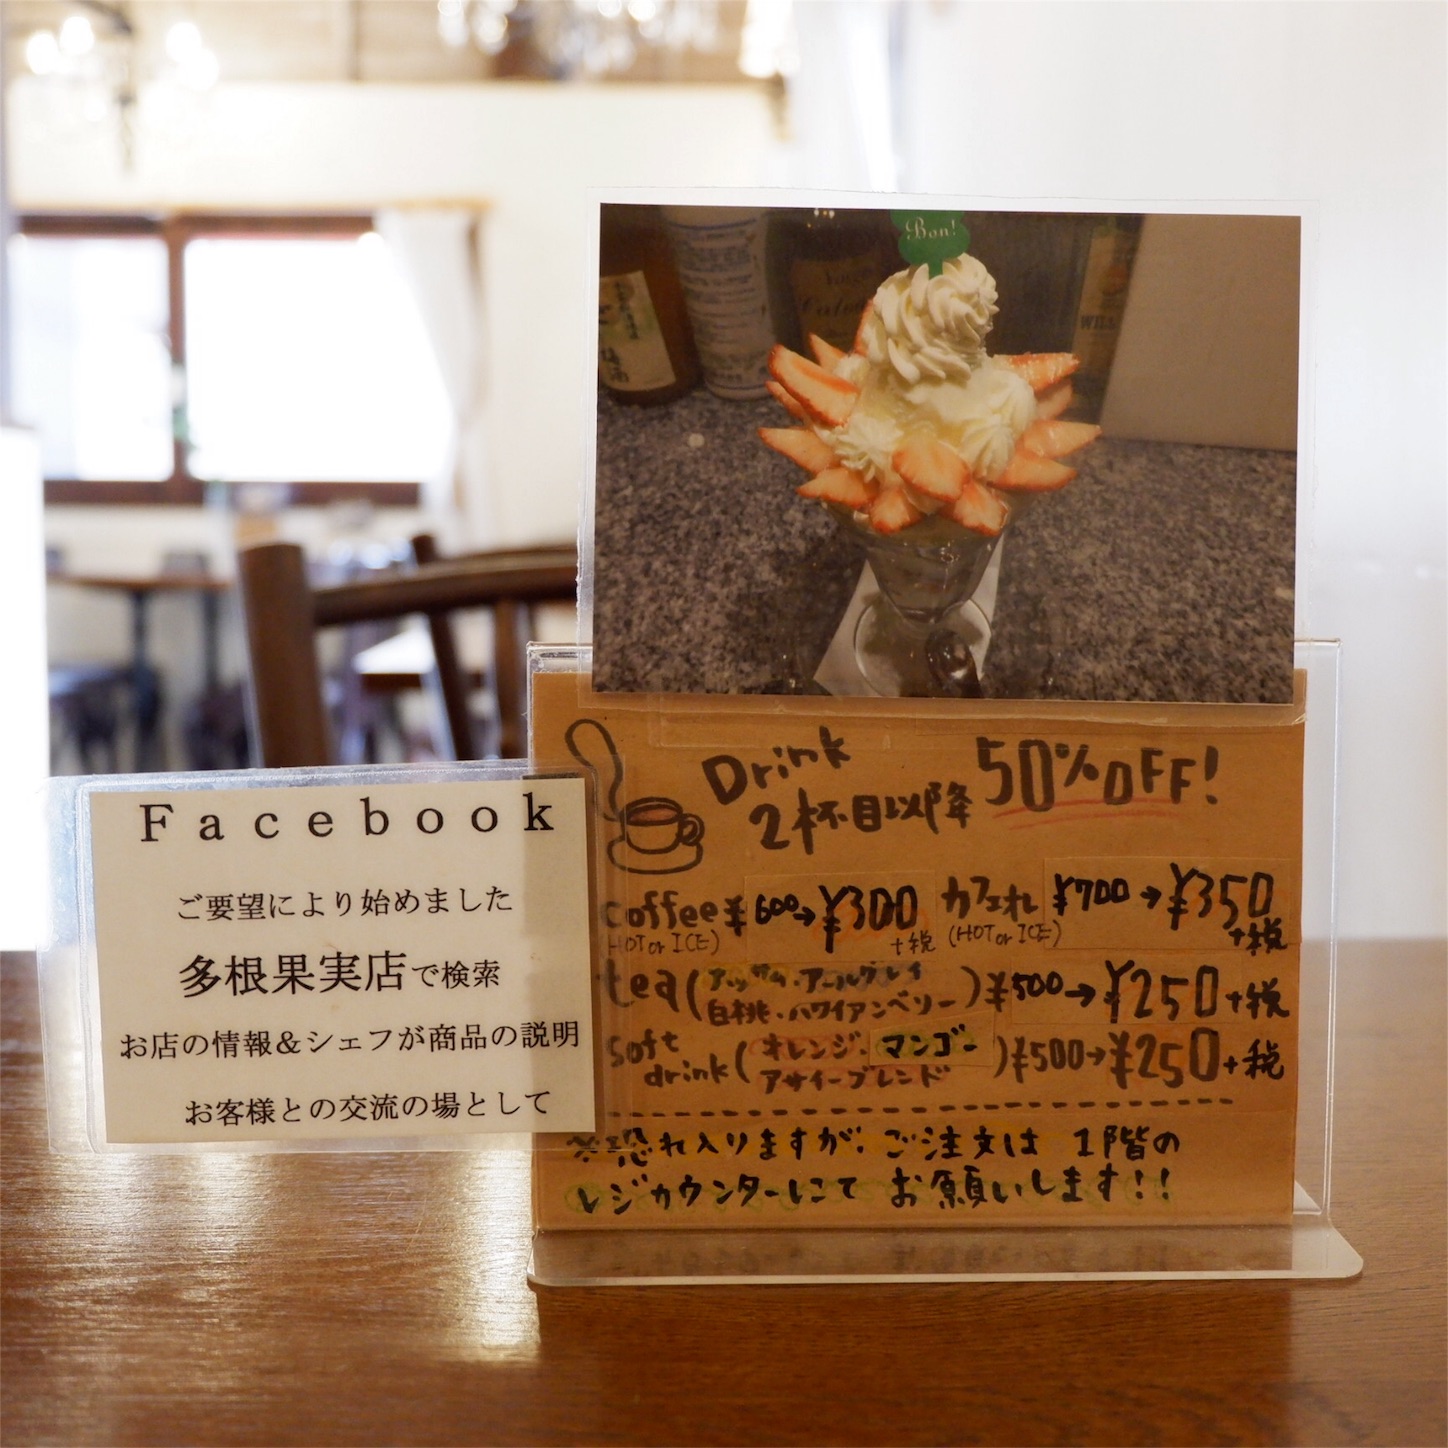 Bon!
WILL
Drink
2杯目以降 50%OFF!
coffee ¥600→¥300 +税
(HOT or ICE)
カフェオレ ¥700→¥350 +税
(HOT or ICE)
tea (アッサム・アールグレイ
白桃・ハワイアンベリー) ¥500→¥250+税
soft drink (オレンジ・マンゴー
アサイーブレンド) ¥500→¥250+税
※恐れ入りますが、ご注文は 1階の
レジカウンターにて お願いします!!
Facebook
ご要望により始めました
多根果実店で検索
お店の情報&シェフが商品の説明
お客様との交流の場として